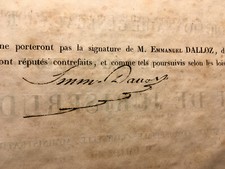 ne porteront pas la signature de M. EMMANUEL DALLOZ, d
ont réputés contrefaits, et comme tels poursuivis selon les lois
Emm. Dalloz